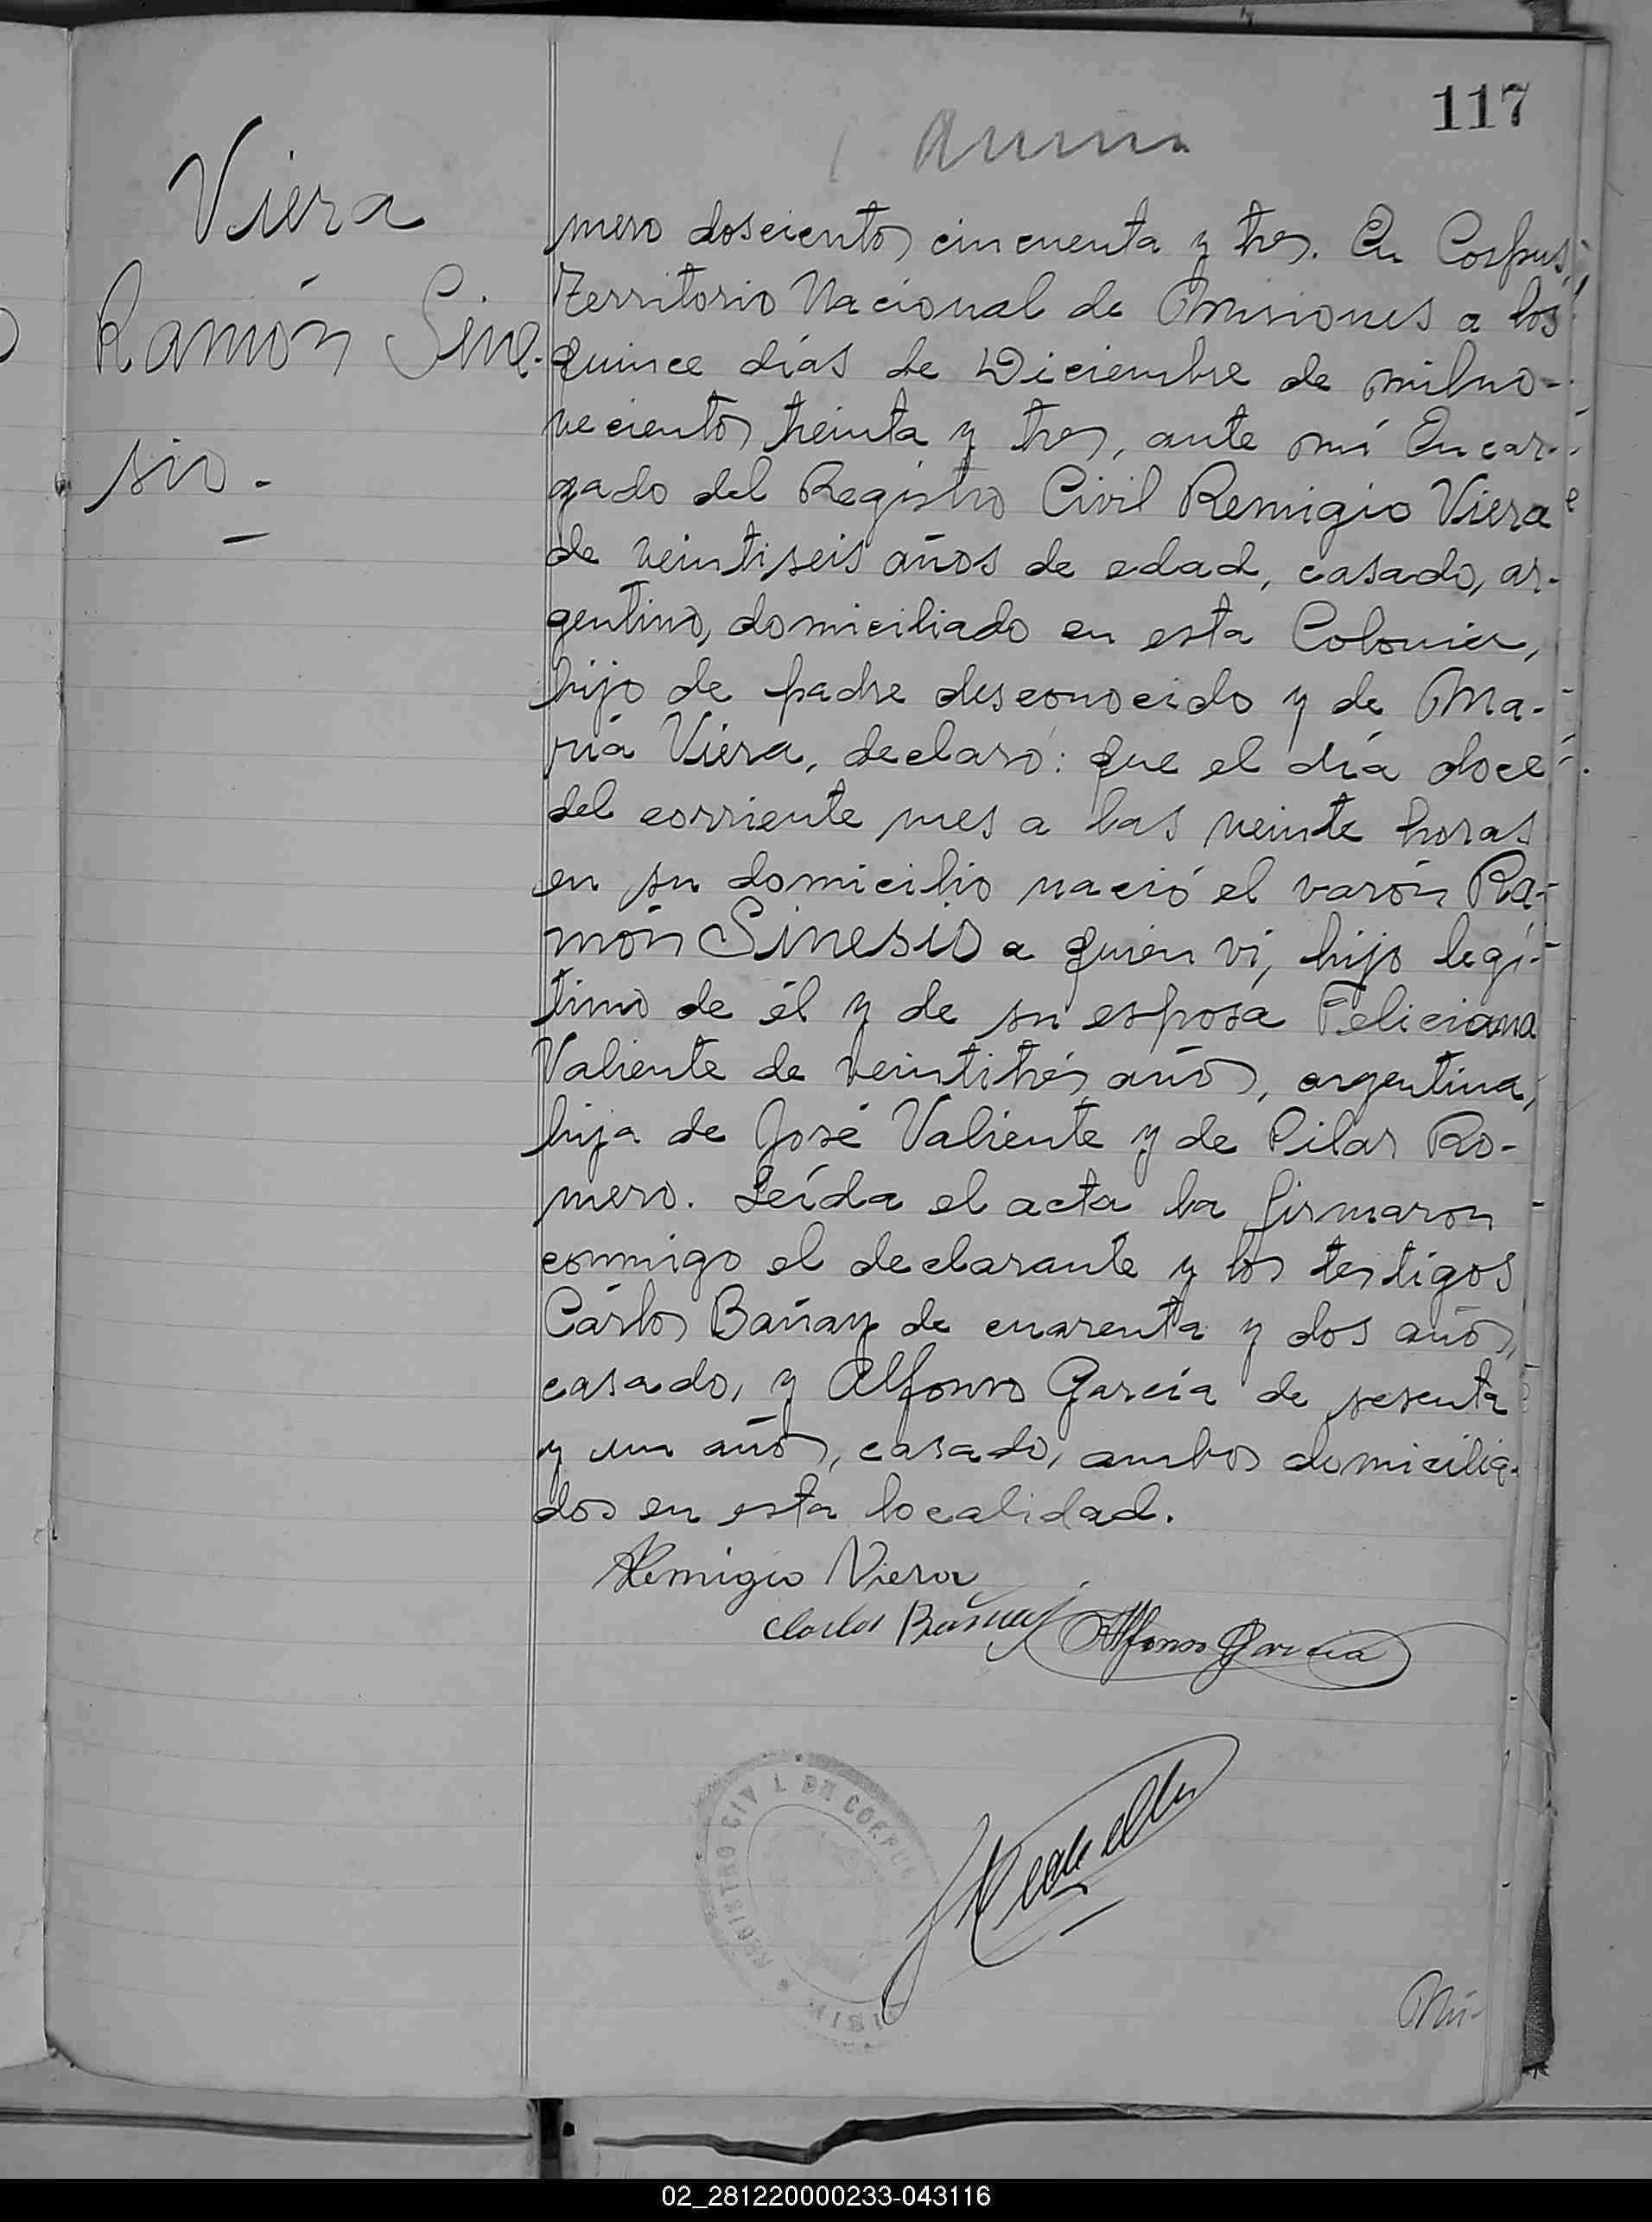 117
Viera
Ramón Sine-
sio.-
mero doscientos cincuenta y tres. En Corpus,
Territorio Nacional de Misiones a los
quince días de Diciembre de milno-
vecientos treinta y tres, ante mí Encar-
gado del Registro Civil Remigio Viera
de veintiseis años de edad, casado, ar-
gentino, domiciliado en esta Colonia,
hijo de padre desconocido y de Ma-
ría Viera, declaró: que el día doce
del corriente mes a las veinte horas
en su domicilio nació el varón Ra-
món Sinesio a quien ví, hijo legí-
timo de él y de su esposa Feliciana
Valiente de veintitrés años, argentina,
hija de José Valiente y de Pilar Ro-
mero. Leída el acta la firmaron
conmigo el declarante y los testigos
Cárlos Bañay de cuarenta y dos años,
casado, y Alfonso García de sesenta
y un años, casado, ambos domicilia-
dos en esta localidad.
Remigio Viera
Carlos Bañay Alfonso Garcia
REGISTRO CIVIL DE CORPUS
Nú-
02_281220000233-043116